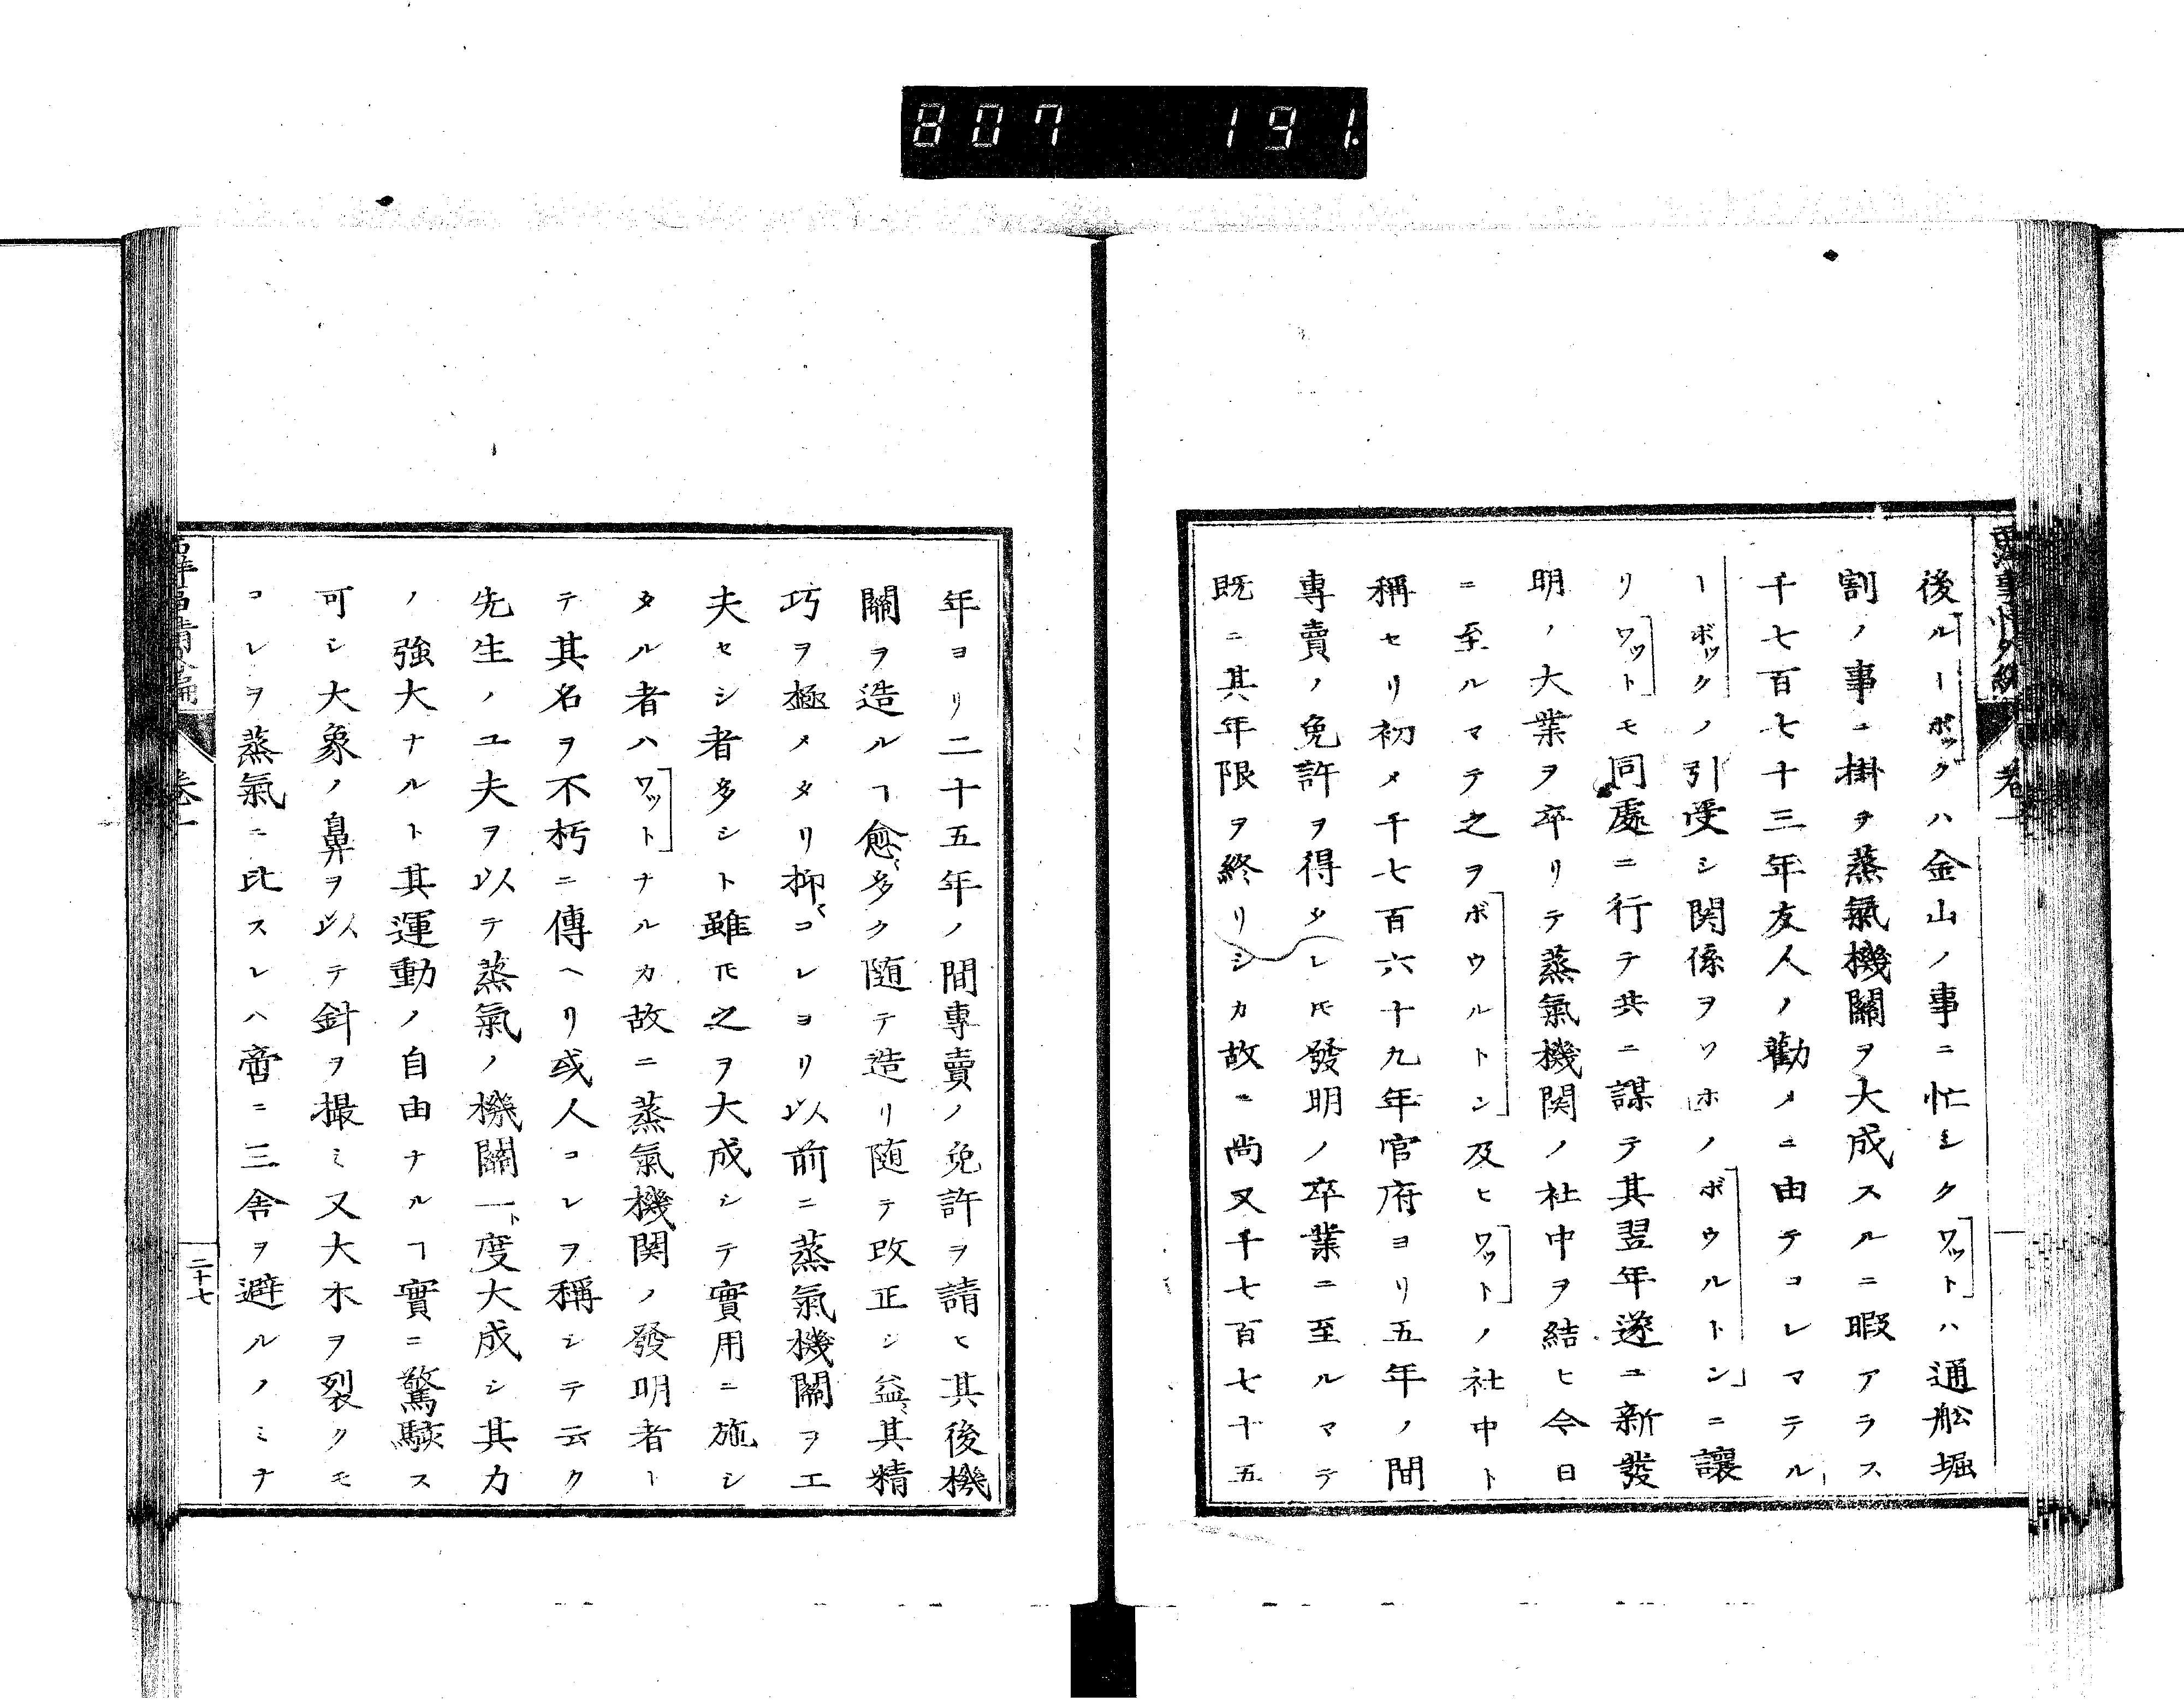 807 191
後ルーボックハ金山ノ事ニ忙シクワットハ通舩堀
割ノ事ニ掛テ蒸氣機關ヲ大成スルニ暇アラス
千七百七十三年友人ノ勸メニ由テコレマテル
ーボックノ引受シ関係ヲソホノボウルトンニ讓
リワットモ同處ニ行テ共ニ謀テ其翌年遂ニ新發
明ノ大業ヲ卒リテ蒸氣機関ノ社中ヲ結ヒ今日
ニ至ルマテ之ヲボウルトン及ヒワットノ社中ト
稱セリ初メ千七百六十九年官府ヨリ五年ノ間
專賣ノ免許ヲ得タレ𪜈發明ノ卒業ニ至ルマテ
既ニ其年限ヲ終リシカ故ニ尚又千七百七十五
年ヨリ二十五年ノ間專賣ノ免許ヲ請ヒ其後機
關ヲ造ルヿ愈多ク随テ造リ随テ改正シ益其精
巧ヲ極メタリ抑コレヨリ以前ニ蒸氣機關ヲ工
夫セシ者多シト雖𪜈之ヲ大成シテ實用ニ施シ
タル者ハワットナルカ故ニ蒸氣機関ノ發明者ト
テ其名ヲ不朽ニ傳ヘリ或人コレヲ稱シテ云ク
先生ノユ夫ヲ以テ蒸氣ノ機關一ト度大成シ其力
ノ強大ナルト其運動ノ自由ナルヿ實ニ驚駭ス
可シ大象ノ鼻ヲ以テ針ヲ撮ミ又大木ヲ裂クモ
コレヲ蒸氣ニ比スレハ啻ニ三舎ヲ避ルノミナ
卷一
二十七